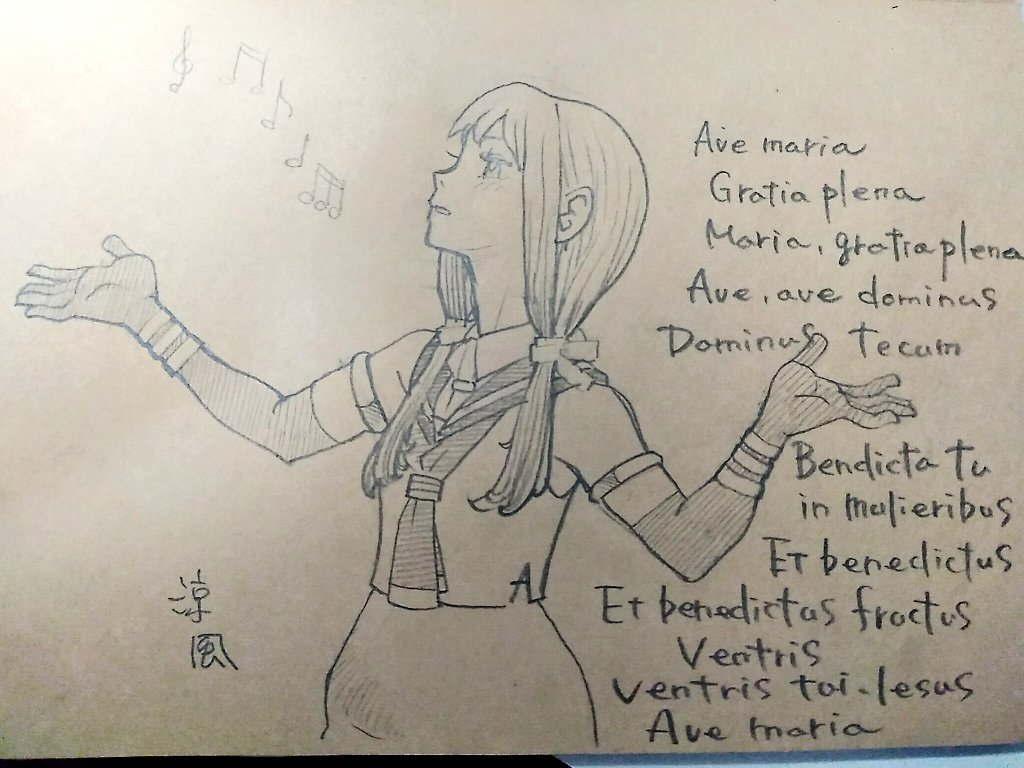 Ave maria
Gratia plena
Maria, gratia plena
Ave, ave dominus
Dominus Tecum
Bendicta Tu
in mulieribus
Et benedictus
Et benedictus fructus
Ventris
Ventris tui. Iesus
Ave maria
A
涼
風